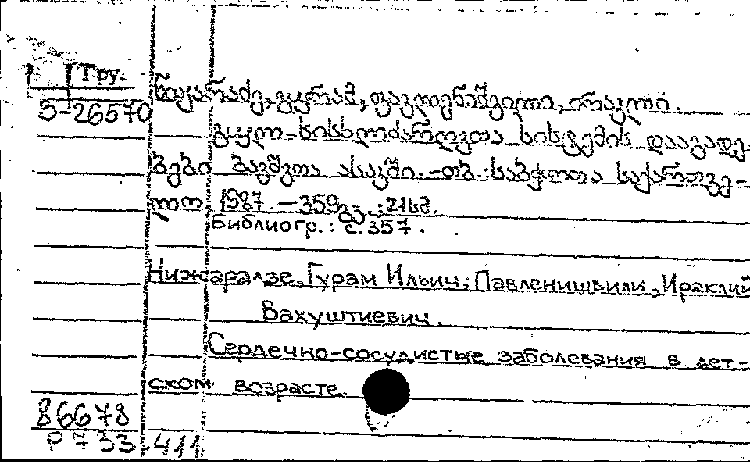 Гру.
5-26570
ნიჟარაძე, გურამ, ფავლენიშვილი, ირაკლი.
გულ-სისხლძარღვთა სისტემის დაავადე-
ბები ბავშვთა ასაკში. -თბ.: საბჭოთა საქართვე-
ლო, 1987. -359გვ.; 21სმ.
Библиогр.: с. 357.
Нижарадзе, Гурам Ильич; Павленишвили, Ираклий
Вахуштиевич.
Сердечно-сосудистые заболевания в дет-
ском возрасте.
86678
Р 733.411